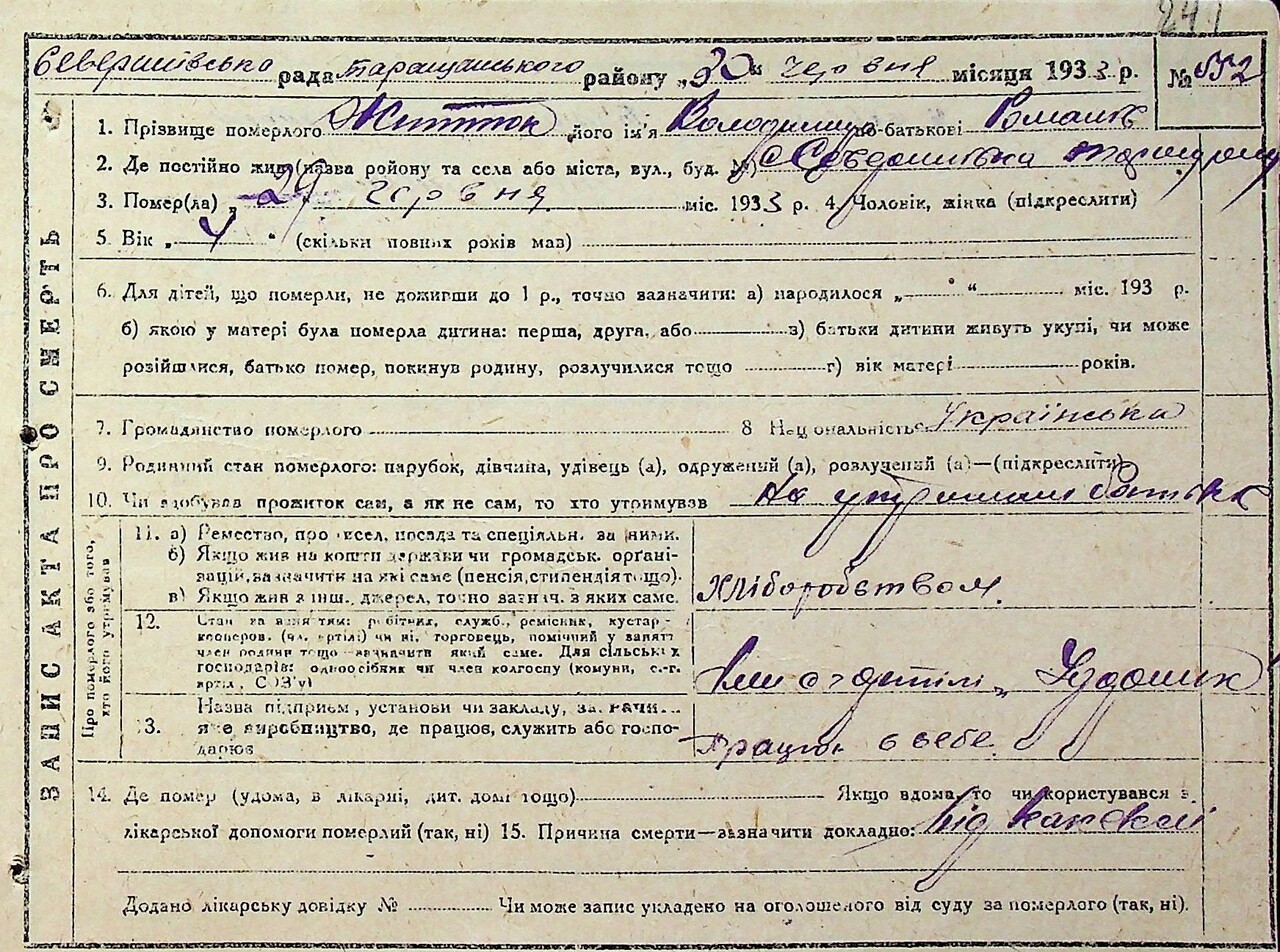 241
рада Таращанського району „30“ червня місяця 1933 р. № 552
ЗАПИС АКТА ПРО СМЕРТЬ
1. Прізвище померлого його ім'я Володимир по-батькові
2. Де постійно жив (назва району та села або міста, вул., буд. №)
3. Помер(ла) „29 червня міс. 1933 р. 4. Чоловік, жінка (підкреслити)
5. Вік „ 4 “ (скільки повних років мав)
6. Для дітей, що померли, не доживши до 1 р., точно зазначити: а) народилося „ “ міс. 193 р.
б) якою у матері була померла дитина: перша, друга, або з) батьки дитини живуть укупі, чи може
розійшлися, батько помер, покинув родину, розлучилися тощо г) вік матері років.
7. Громадянство померлого 8 Національність Українська
9. Родинний стан померлого: парубок, дівчина, удівець (а), одружений (а), розлучений (а)—(підкреслити)
10. Чи здобував прожиток сам, а як не сам, то хто утримував На утриманні батьків
Про померлого або того, хто його утримував
11. а) Ремество, професія, посада та спеціяльн. за ними.
б) Якщо жив на кошти держави чи громадськ. орґані-
зацій, зазначити на які саме (пенсія, стипендія тощо).
в) Якщо жив з інш. джерел, точно зазнач. з яких саме.
хліборобством.
12. Стан за заняттям: робітник, служб., ремісник, кустар-
кооперов. (чл. артілі) чи ні, торговець, помічний у занятт
член родини тощо зазначити який саме. Для сільських
господарів: одноосібник чи член колгоспу (комуни, с.-г.
артіл., СОЗ'у)
13. Назва підприєм., установи чи закладу, зазначи...
яке виробництво, де працює, служить або госпо-
дарює
працює в себе
14. Де помер (удома, в лікарні, дит. домі тощо) Якщо вдома, то чи користувався з
лікарської допомоги померлий (так, ні) 15. Причина смерти—зазначити докладно: від
Додано лікарську довідку № Чи може запис укладено на оголошеного від суду за померлого (так, ні).